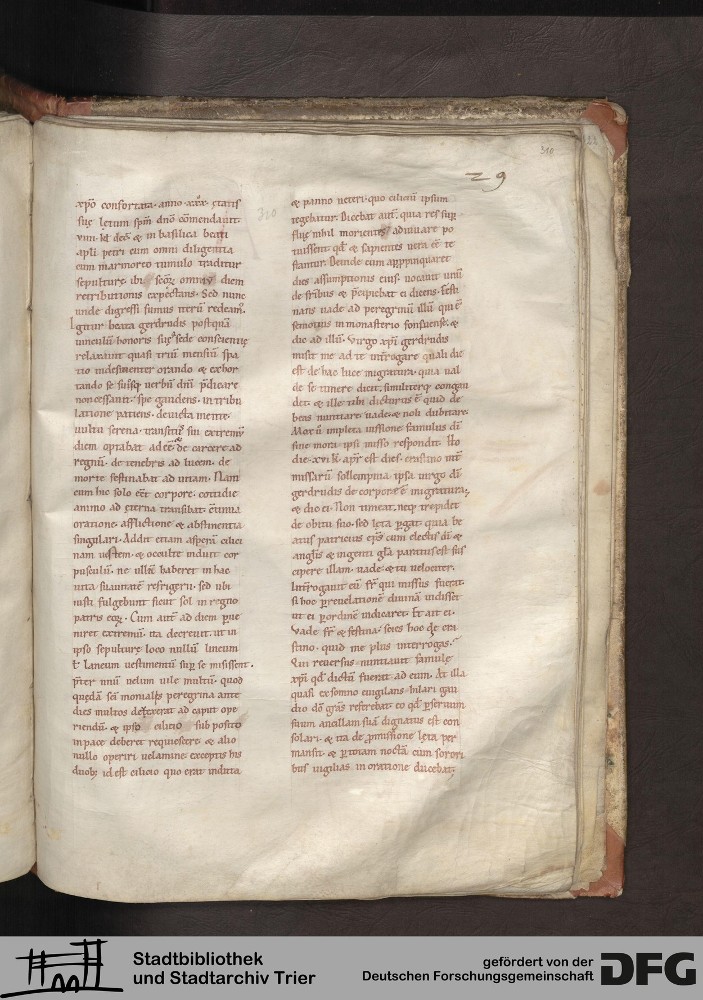 310
29
xpo confortata. anno .xxx. ętatis
suę lętum spm dno cōmendauit.
viiii. kl decē & in basilica beati
apli petri cum omni diligentia
cum marmoreo tumulo traditur
sepulturę. ibi scōꝝ omniū diem
retributionis expectans. Sed nunc
unde digressi sumus iterū redeam.
Igitur beata gerdrudis postquā
uinculū honoris suę sede conscientię
relaxauit quasi triū mensiū spa
tio indesinenter orando & exhor
tando se suisq; uerbū dnī p̄dicare
non cessauit. spe gaudens. in tribu
latione patiens. deuicta mente.
uultu serena. transitū sui extremū
diem optabat adeē de carcere ad
regnū. de tenebris ad lucem. de
morte festinabat ad uitam. Nam
cum hic solo eēt corpore. cottidie
animo ad ęterna transibat. cōtinua
oratione. afflictione & abstinentia
singulari. Addit etiam asperā cilici
nam uestem. & occulte induit cor
pusculū. ne ullā haberet in hac
uita suauitatē refrigerii. sed ubi
iusti fulgebunt sicut sol in regno
patris eoꝝ. Cum aut ad diem pue
niret extremū. ita decreuit. ut in
ipso sepulturę loco nullū lineum
ł laneum uestimentū sup se misissent.
p̄ter unū uelum uile multū. quod
quędā sc̄i monialis peregrina ante
dies multos detexerat ad caput ope
riendū. & ipso cilicio subposito
in pace deberet requiescere. & alio
nullo operiri uelamine. exceptis his
duobꝫ id est cilicio quo erat induta
& panno ueteri. quo ciliciū ipsum
tegebatur. Dicebat aut. quia res sup
fluę nihil morientes adiuuare po
tuissent. qd & sapientes uera eē te
stantur. Deinde cum appropinquaret
dies assumptionis eius. uocauit unū
de fr̄ibus & p̄cipiebat ei dicens. Festi
nans uade ad peregrinū illū qui ē
semotus in monasterio fonsuense. &
dic ad illū. Virgo xp̄i gerdrudis
misit me ad te int̄rogare quali die
est de hac luce migratura. quia ual
de se timere dicit. similiterq; congau
det. & ille tibi dicturus ē quid de
beas nuntiare. uade. & noli dubitare.
Mox ū impleta iussione famulus dī
sine mora ipsi misso respondit. Ho
die .xvi. kl apr est dies. crastino int̄
missarū sollempnia ipsa uirgo dī
gerdrudis de corpore ē migratura.
& dic ei. Non timeat. neq; trepidet
de obitu suo. sed lęta pergat. quia be
atus patricius ep̄s cum electis dī &
anglis & ingenti glā paratus est sus
cipere illam. uade & tu uelociter.
Int̄rogauit eū fr̄ qui missus fuerat.
si hoc p reuelationē diuinā uidisset
ut ei p ordinē indicaret. Et ait ei.
Vade fr̄ & festina. scies hoc de cra
stino. quid me plus interrogas.
Qui reuersus nuntiauit famulę
xp̄i qd dictū fuerat ad eum. At illa
quasi ex somno euigilans. hilari gau
dio dō grās referebat. eo qd p seruum
suum ancillam suā dignatus est con
solari. & ita de p̄missione lęta per
mansit. & p totam noctē cum sorori
bus uigilias in oratione ducebat.
Stadtbibliothek
und Stadtarchiv Trier
gefördert von der
Deutschen Forschungsgemeinschaft
DFG